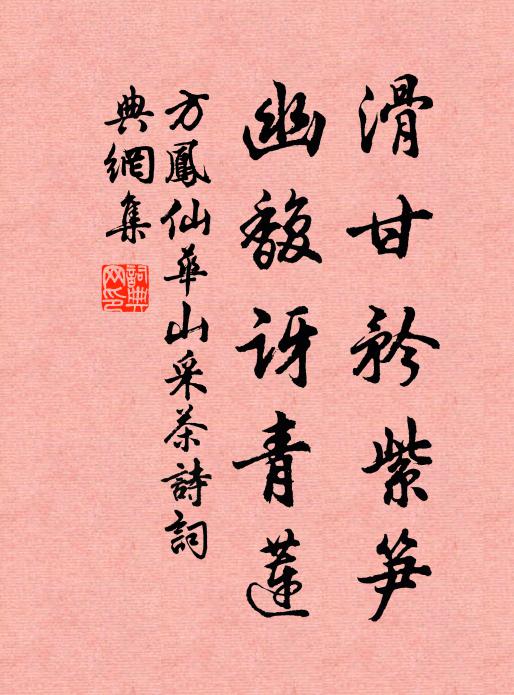 滑甘矜紫笋
幽馥讶青莲
方鳳仙華山采茶詩詞
典網集
詞典網印